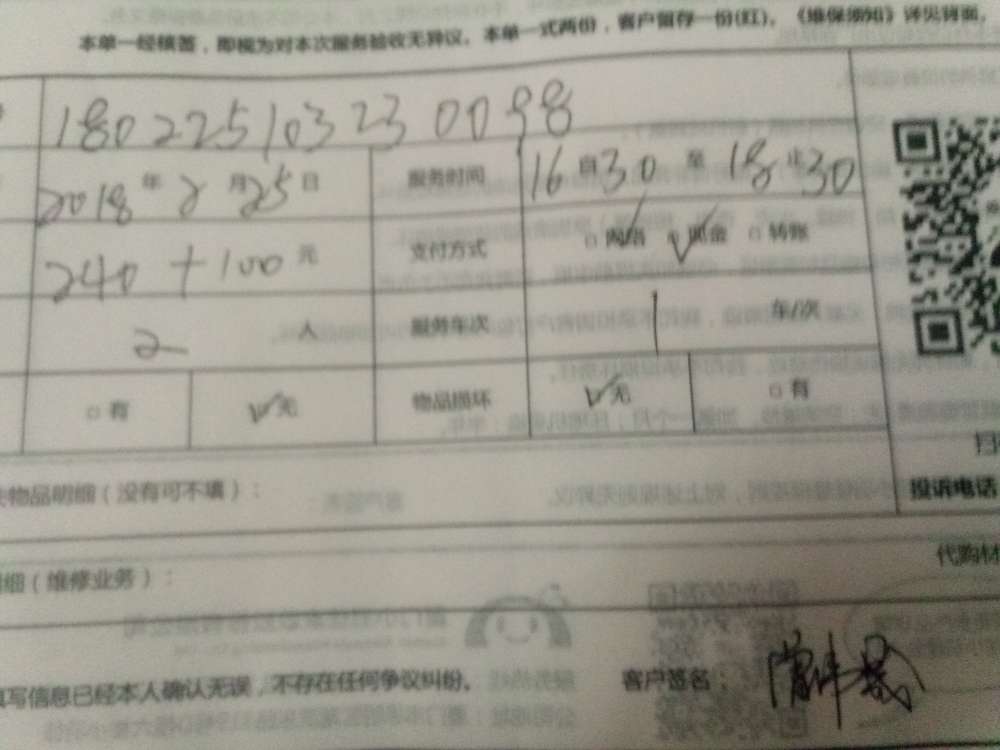 本单一经核签，即视为对本次服务验收无异议。本单一式两份，客户留存一份(红)。《维保须知》详见背面。
180225103230098
2018年2月25日 服务时间 16自30至18止30
240+100元 支付方式 □网络 ✓现金 □转账
2人 服务车次 1 车/次
□有 ✓无 物品损坏 ✓无 □有
物品明细（没有可不填）：
投诉电话
细（维修业务）：
代购材
写信息已经本人确认无误，不存在任何争议纠纷。 客户签名：